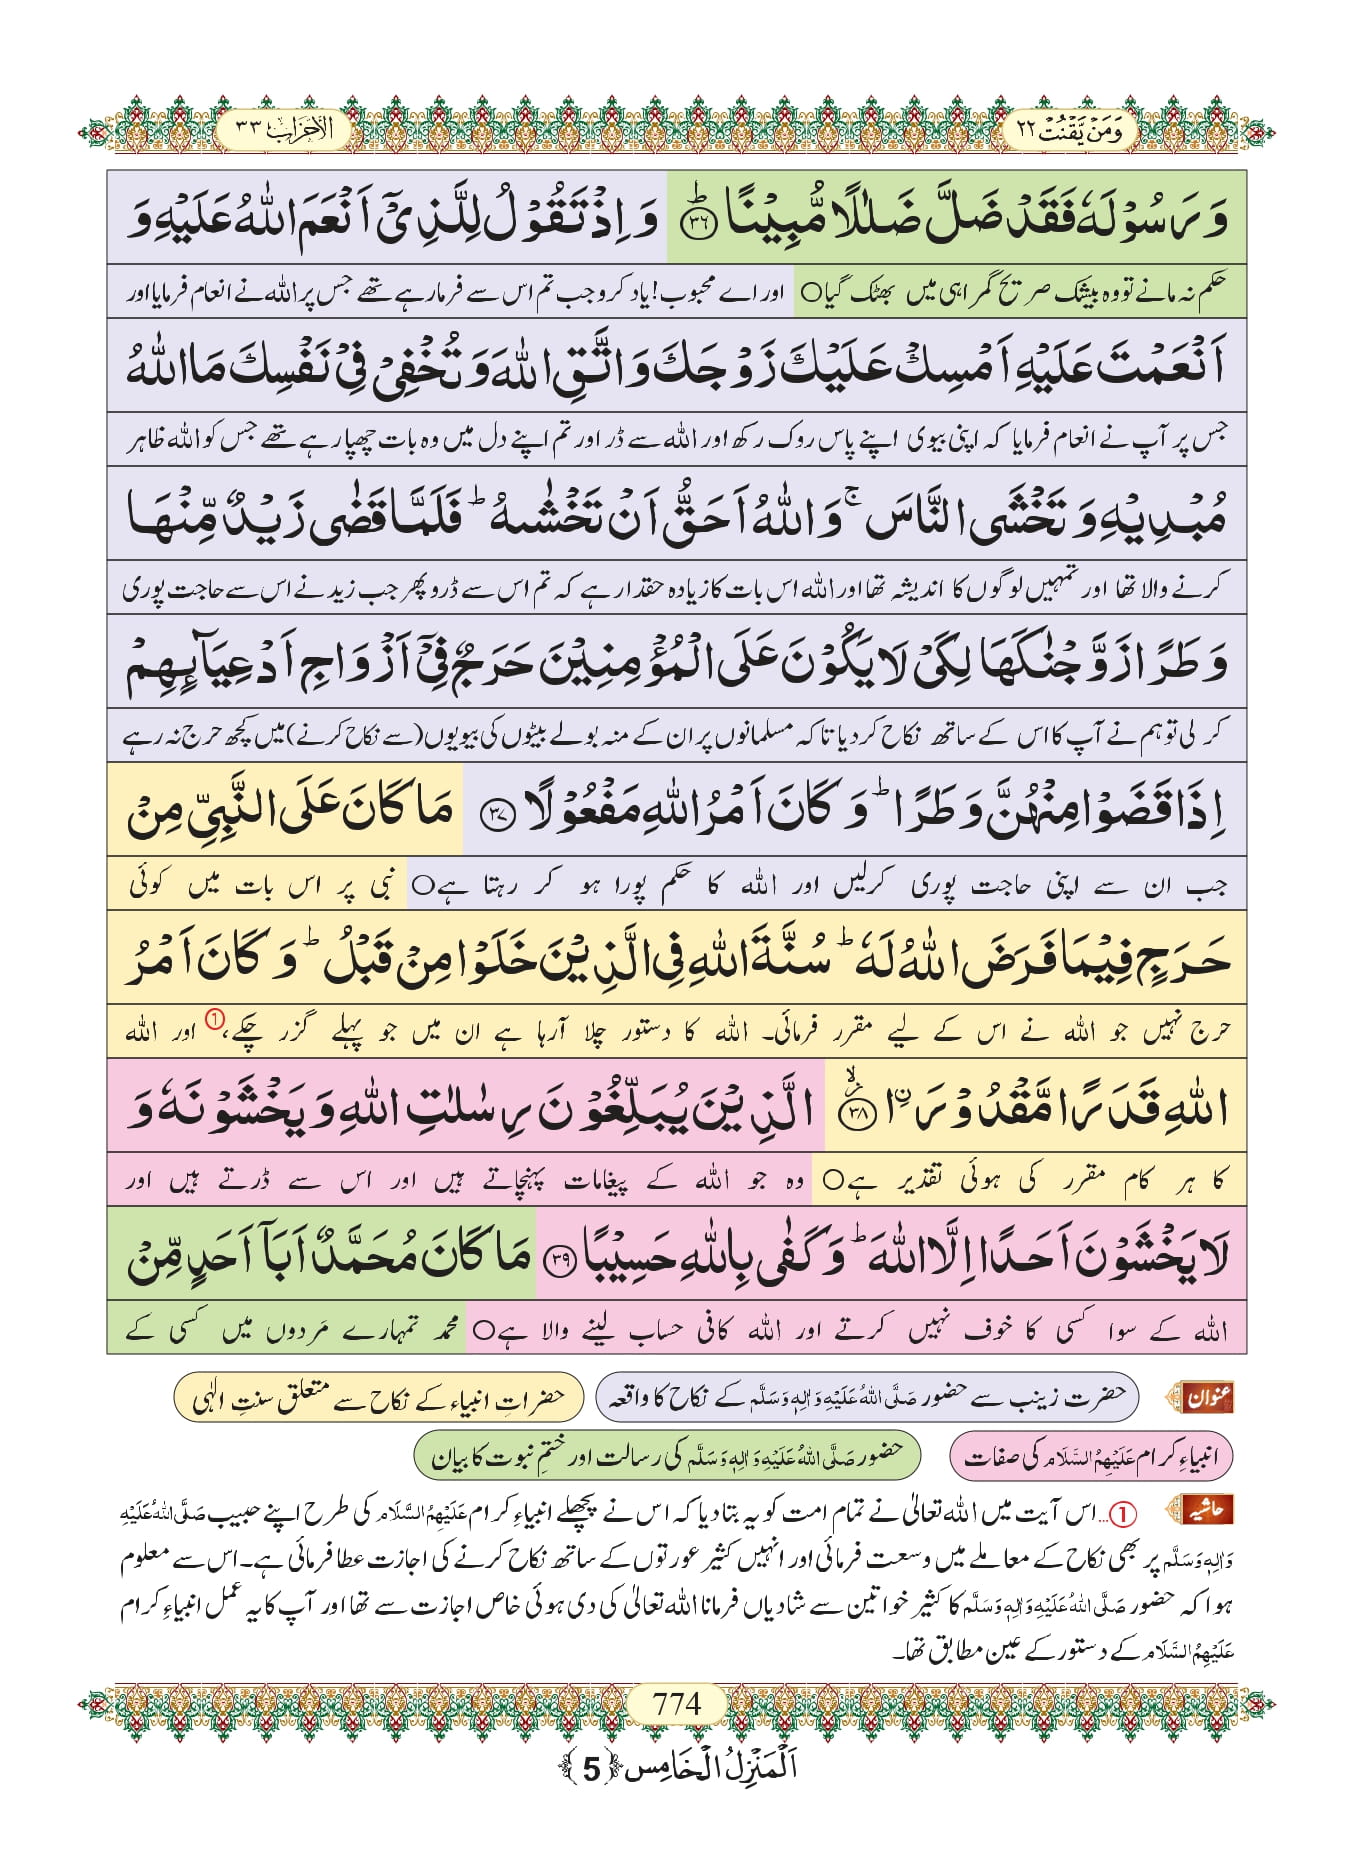 وَمَنْ يَّقْنُتْ ٢٢
الاحزاب ٣٣
وَ رَسُوْلَهٗ فَقَدْ ضَلَّ ضَلٰلًا مُّبِيْنًا ؕ ٣٦ وَ اِذْ تَقُوْلُ لِلَّذِیْۤ اَنْعَمَ اللهُ عَلَيْهِ وَ
حکم نہ مانے تو وہ بیشک صریح گمراہی میں بھٹک گیا○ اور اے محبوب! یاد کرو جب تم اس سے فرما رہے تھے جس پر الله نے انعام فرمایا اور
اَنْعَمْتَ عَلَيْهِ اَمْسِكْ عَلَيْكَ زَوْجَكَ وَ اتَّقِ اللهَ وَ تُخْفِیْ فِیْ نَفْسِكَ مَا اللهُ
جس پر آپ نے انعام فرمایا کہ اپنی بیوی اپنے پاس روک رکھ اور الله سے ڈر اور تم اپنے دل میں وہ بات چھپا رہے تھے جس کو الله ظاہر
مُبْدِيْهِ وَ تَخْشَى النَّاسَ ۚ وَ اللهُ اَحَقُّ اَنْ تَخْشٰىهُ ؕ فَلَمَّا قَضٰى زَيْدٌ مِّنْهَا
کرنے والا تھا اور تمہیں لوگوں کا اندیشہ تھا اور الله اس بات کا زیادہ حقدار ہے کہ تم اس سے ڈرو پھر جب زید نے اس سے حاجت پوری
وَطَرًا زَوَّجْنٰكَهَا لِكَیْ لَا يَكُوْنَ عَلَى الْمُؤْمِنِيْنَ حَرَجٌ فِیْۤ اَزْوَاجِ اَدْعِيَآىِٕهِمْ
کر لی تو ہم نے آپ کا اس کے ساتھ نکاح کردیا تاکہ مسلمانوں پر ان کے منہ بولے بیٹوں کی بیویوں (سے نکاح کرنے) میں کچھ حرج نہ رہے
اِذَا قَضَوْا مِنْهُنَّ وَطَرًا ؕ وَ كَانَ اَمْرُ اللهِ مَفْعُوْلًا ٣٧ مَا كَانَ عَلَى النَّبِیِّ مِنْ
جب ان سے اپنی حاجت پوری کرلیں اور الله کا حکم پورا ہو کر رہتا ہے○ نبی پر اس بات میں کوئی
حَرَجٍ فِيْمَا فَرَضَ اللهُ لَهٗ ؕ سُنَّةَ اللهِ فِی الَّذِيْنَ خَلَوْا مِنْ قَبْلُ ؕ وَ كَانَ اَمْرُ
حرج نہیں جو الله نے اس کے لیے مقرر فرمائی۔ الله کا دستور چلا آرہا ہے ان میں جو پہلے گزر چکے،① اور الله
اللهِ قَدَرًا مَّقْدُوْرَا ۙ ٣٨ الَّذِيْنَ يُبَلِّغُوْنَ رِسٰلٰتِ اللهِ وَ يَخْشَوْنَهٗ وَ
کا ہر کام مقرر کی ہوئی تقدیر ہے○ وہ جو الله کے پیغامات پہنچاتے ہیں اور اس سے ڈرتے ہیں اور
لَا يَخْشَوْنَ اَحَدًا اِلَّا اللهَ ؕ وَ كَفٰى بِاللهِ حَسِيْبًا ٣٩ مَا كَانَ مُحَمَّدٌ اَبَاۤ اَحَدٍ مِّنْ
الله کے سوا کسی کا خوف نہیں کرتے اور الله کافی حساب لینے والا ہے○ محمد تمہارے مَردوں میں کسی کے
عنوان حضرت زینب سے حضور صَلَّى اللهُ عَلَيْهِ وَاٰلِهٖ وَسَلَّم کے نکاح کا واقعہ حضراتِ انبیاء کے نکاح سے متعلق سنتِ الٰہی
انبیاءِ کرام عَلَيْهِمُ السَّلَام کی صفات حضور صَلَّى اللهُ عَلَيْهِ وَاٰلِهٖ وَسَلَّم کی رسالت اور ختمِ نبوت کا بیان
حاشیہ ①...اس آیت میں الله تعالیٰ نے تمام امت کو یہ بتا دیا کہ اس نے پچھلے انبیاءِ کرام عَلَيْهِمُ السَّلَام کی طرح اپنے حبیب صَلَّى اللهُ عَلَيْهِ
وَاٰلِهٖ وَسَلَّم پر بھی نکاح کے معاملے میں وسعت فرمائی اور انہیں کثیر عورتوں کے ساتھ نکاح کرنے کی اجازت عطا فرمائی ہے۔ اس سے معلوم
ہوا کہ حضور صَلَّى اللهُ عَلَيْهِ وَاٰلِهٖ وَسَلَّم کا کثیر خواتین سے شادیاں فرمانا الله تعالیٰ کی دی ہوئی خاص اجازت سے تھا اور آپ کا یہ عمل انبیاءِ کرام
عَلَيْهِمُ السَّلَام کے دستور کے عین مطابق تھا۔
774
اَلْمَنْزِلُ الْخَامِس ﴿5﴾